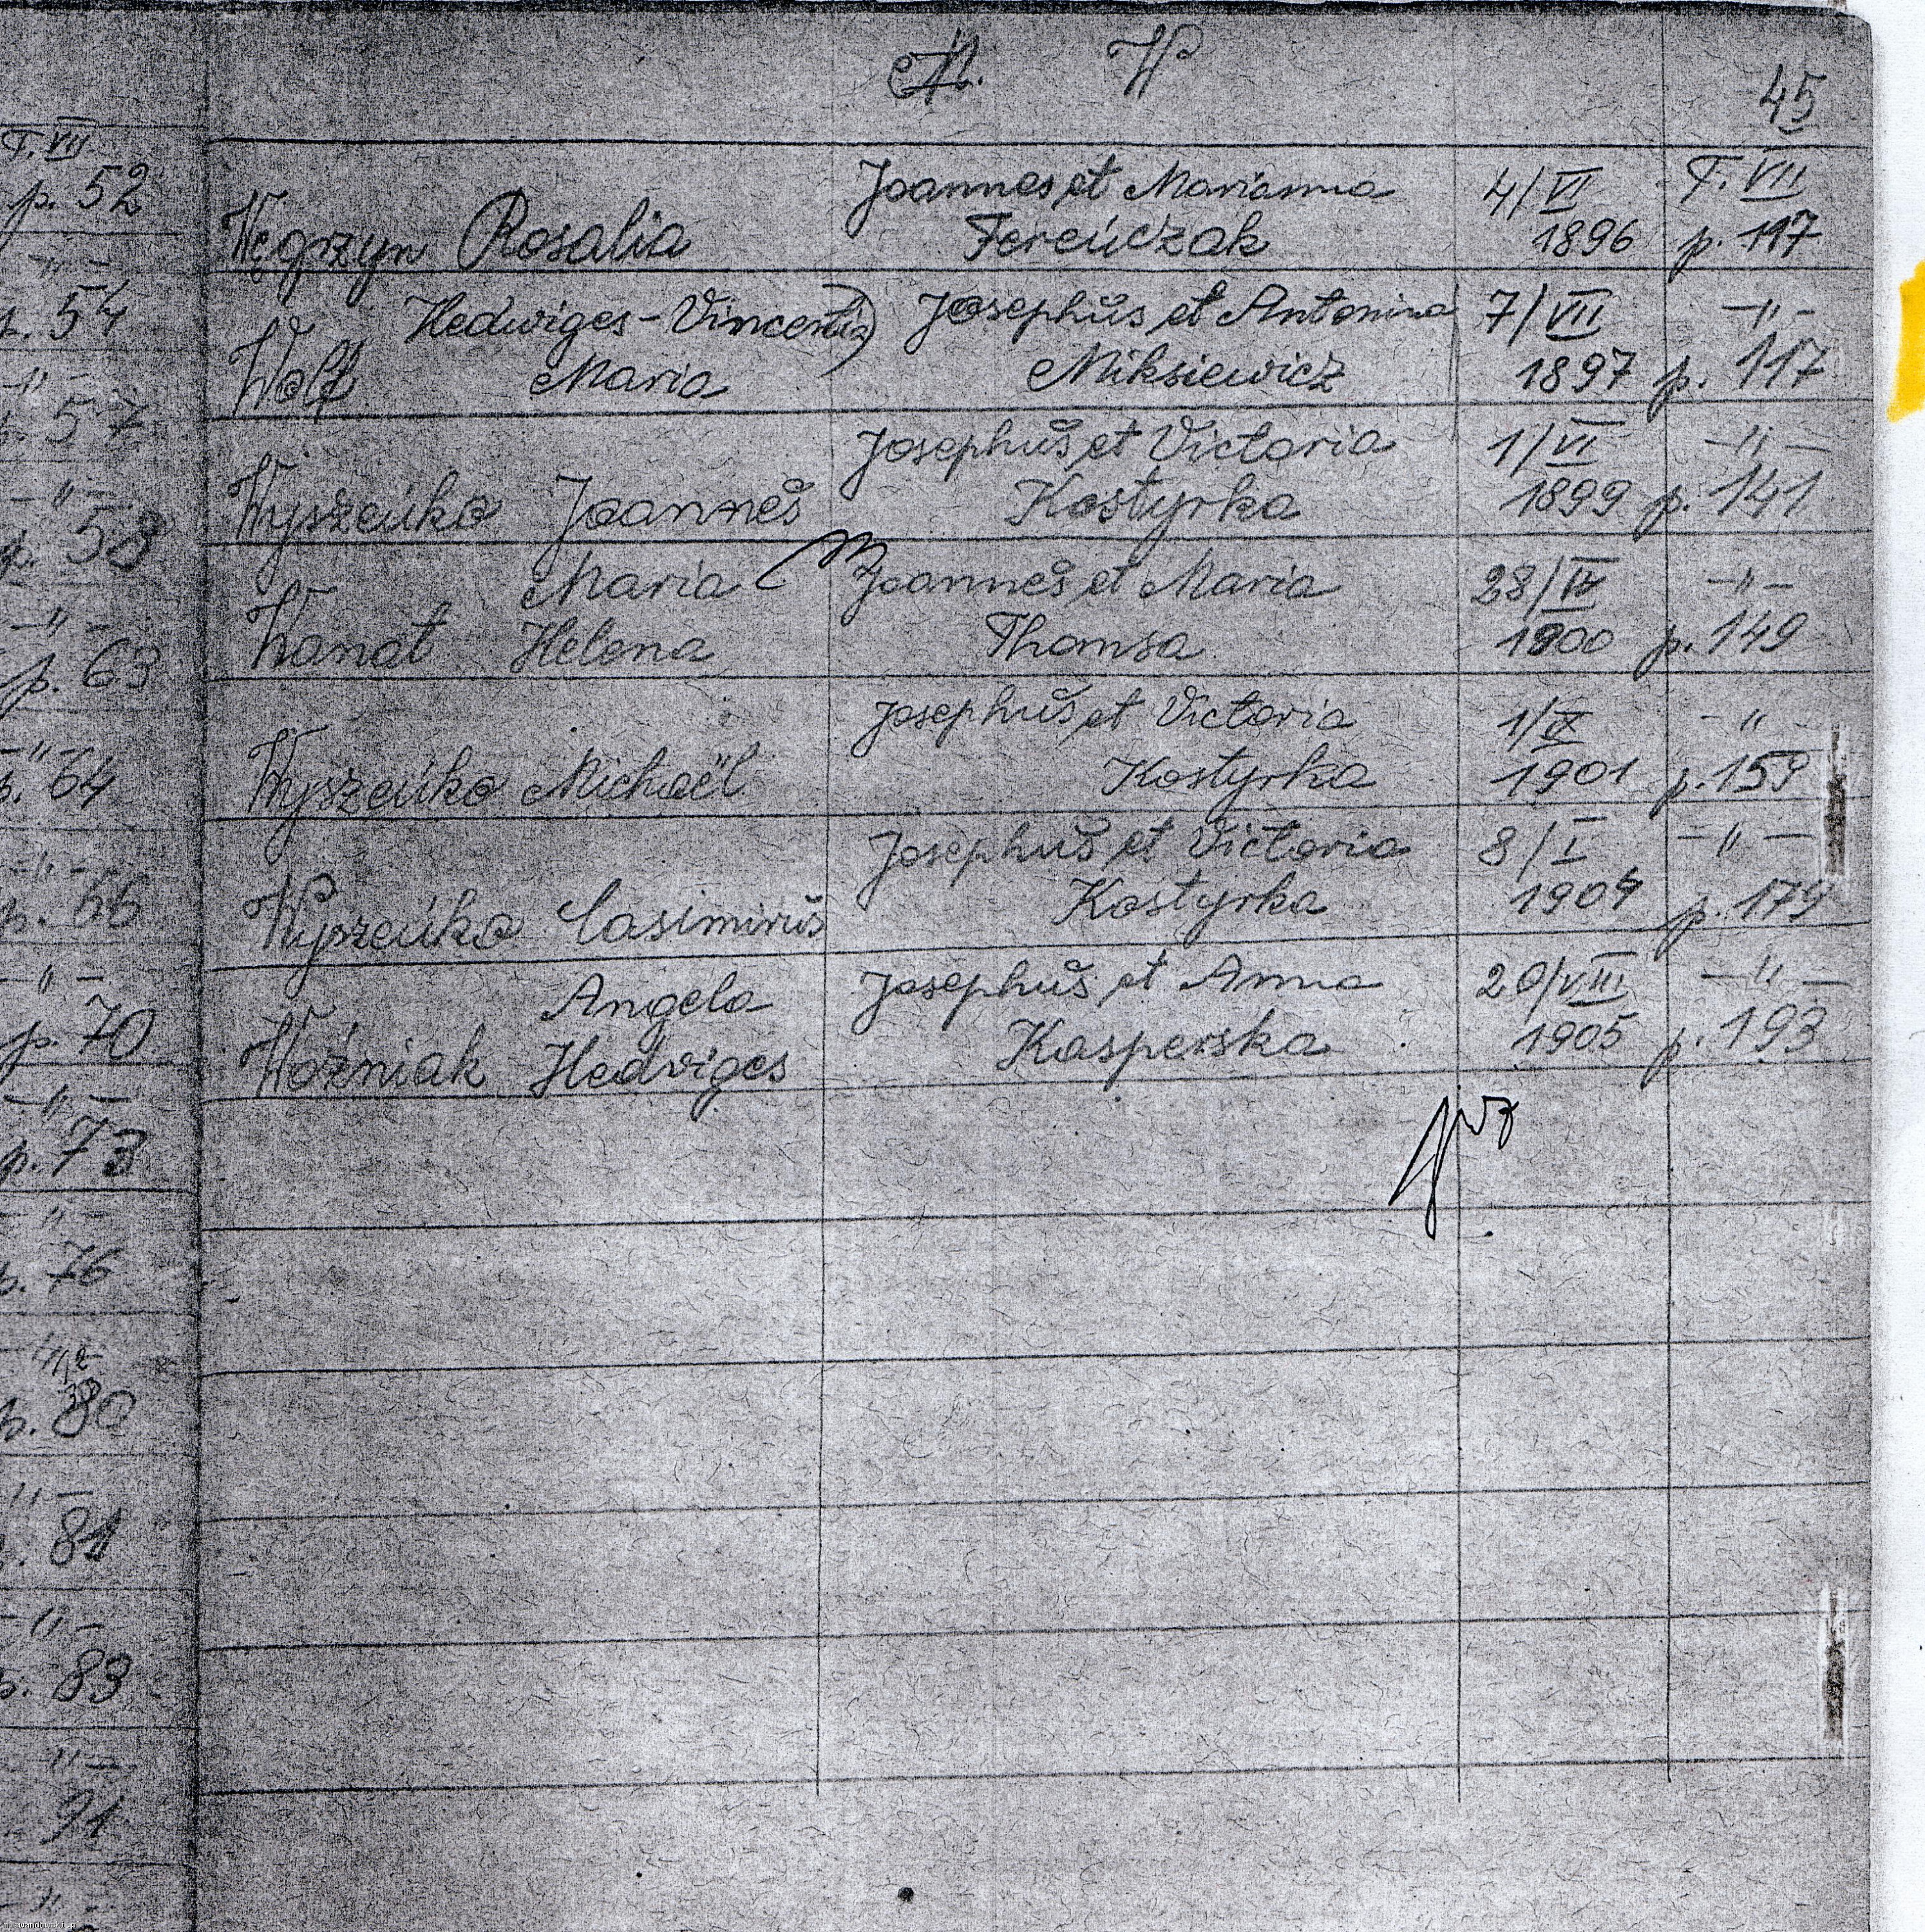 W
45
T. VII
p. 52
-"-
p. 54
-"-
57
-"-
p. 58
-"-
p. 63
-"-
p. 64
-"-
p. 66
-"-
p. 70
-"-
p. 73
-"-
p. 76
p. 80
-"-
81
-"-
p. 83
-"-
91
Joannes et Marianna 4/VI T. VII
Węgrzyn Rosalia Fereńczak 1896 p. 117
Hedwiges-Vincentia) Josephus et Antonina 7/VII -"-
Wolf Maria Miksiewicz 1897 p. 117
Josephus et Victoria 1/VI -"-
Wyszeńko Joannes Kostyrka 1899 p. 141
Maria Joannes et Maria 28/IV -"-
Wanat Helena Thomsa 1900 p. 149
Josephus et Victoria 1/IX -"-
Wyszeńko Michaël Kostyrka 1901 p. 159
Josephus et Victoria 8/I -"-
Wyszeńko Casimirus Kostyrka 1904 p. 179
Angela Josephus et Anna 20/VIII -"-
Woźniak Hedviges Kasperska 1905 p. 193